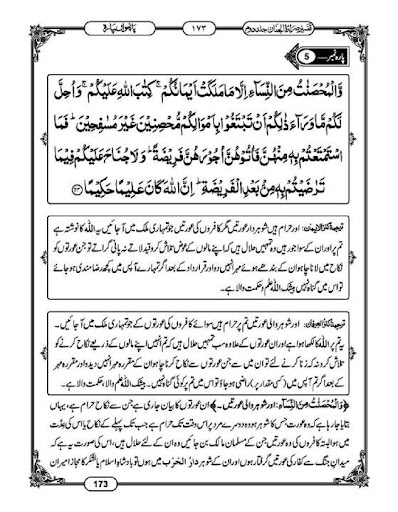 پانچواں پارہ
١٧٣
تفسیر صراط الجنان جلد دوم
پارہ نمبر ..... 5
وَّالْمُحْصَنٰتُ مِنَ النِّسَآءِ اِلَّا مَا مَلَكَتْ اَیْمَانُكُمْۚ كِتٰبَ اللّٰهِ عَلَیْكُمْۚ وَ اُحِلَّ
لَكُمْ مَّا وَرَآءَ ذٰلِكُمْ اَنْ تَبْتَغُوْا بِاَمْوَالِكُمْ مُّحْصِنِیْنَ غَیْرَ مُسٰفِحِیْنَؕ فَمَا
اسْتَمْتَعْتُمْ بِهٖ مِنْهُنَّ فَاٰتُوْهُنَّ اُجُوْرَهُنَّ فَرِیْضَةًؕ وَ لَا جُنَاحَ عَلَیْكُمْ فِیْمَا
تَرٰضَیْتُمْ بِهٖ مِنْۢ بَعْدِ الْفَرِیْضَةِؕ اِنَّ اللّٰهَ كَانَ عَلِیْمًا حَكِیْمًا
ترجمۂ کنزالایمان: اور حرام ہیں شوہر دار عورتیں مگر کافروں کی عورتیں جو تمہاری ملک میں آجائیں یہ اللہ کا نوشتہ ہے
تم پر اور ان کے سوا جو رہیں وہ تمہیں حلال ہیں کہ اپنے مالوں کے عوض تلاش کرو قید لاتے نہ پانی گراتے تو جن عورتوں کو
نکاح میں لانا چاہو ان کے بندھے ہوئے مہر انہیں دو اور قرارداد کے بعد اگر تمہارے آپس میں کچھ رضامندی ہو جائے
تو اس میں گناہ نہیں بیشک اللہ علم و حکمت والا ہے۔
ترجمۂ کنزالعرفان: اور شوہر والی عورتیں تم پر حرام ہیں سوائے کافروں کی عورتوں کے جو تمہاری ملک میں آجائیں۔
یہ تم پر اللہ کا لکھا ہوا ہے اور ان عورتوں کے علاوہ سب تمہیں حلال ہیں کہ تم انہیں اپنے مالوں کے ذریعے نکاح کرنے کو
تلاش کرو نہ کہ زنا کرنے کے لئے تو ان میں سے جن عورتوں سے نکاح کرنا چاہو ان کے مقررہ مہر انہیں دیدو اور مقررہ مہر
کے بعد اگر تم آپس میں (کسی مقدار پر) راضی ہوجاؤ تو اس میں تم پر کوئی گناہ نہیں۔ بیشک اللہ علم والا، حکمت والا ہے۔
﴿وَالْمُحْصَنٰتُ مِنَ النِّسَآءِ: اور شوہر والی عورتیں۔﴾ ان عورتوں کا بیان جاری ہے جن سے نکاح حرام ہے، یہاں
بتایا جارہا ہے کہ وہ عورت جس کا شوہر ہو وہ دوسرے مرد پر اس وقت تک حرام ہے جب تک پہلے کے نکاح یا اس کی عدت
میں ہو البتہ کافروں کی وہ عورتیں جن کے مسلمان مالک بن جائیں وہ ان کے لئے حلال ہیں، اس کی صورت یہ ہے کہ
میدانِ جنگ سے کفار کی عورتیں گرفتار ہوں اور ان کے شوہر دارُ الحرب میں ہوں تو بادشاہ اسلام یا لشکر کا مجاز امیر ان
173